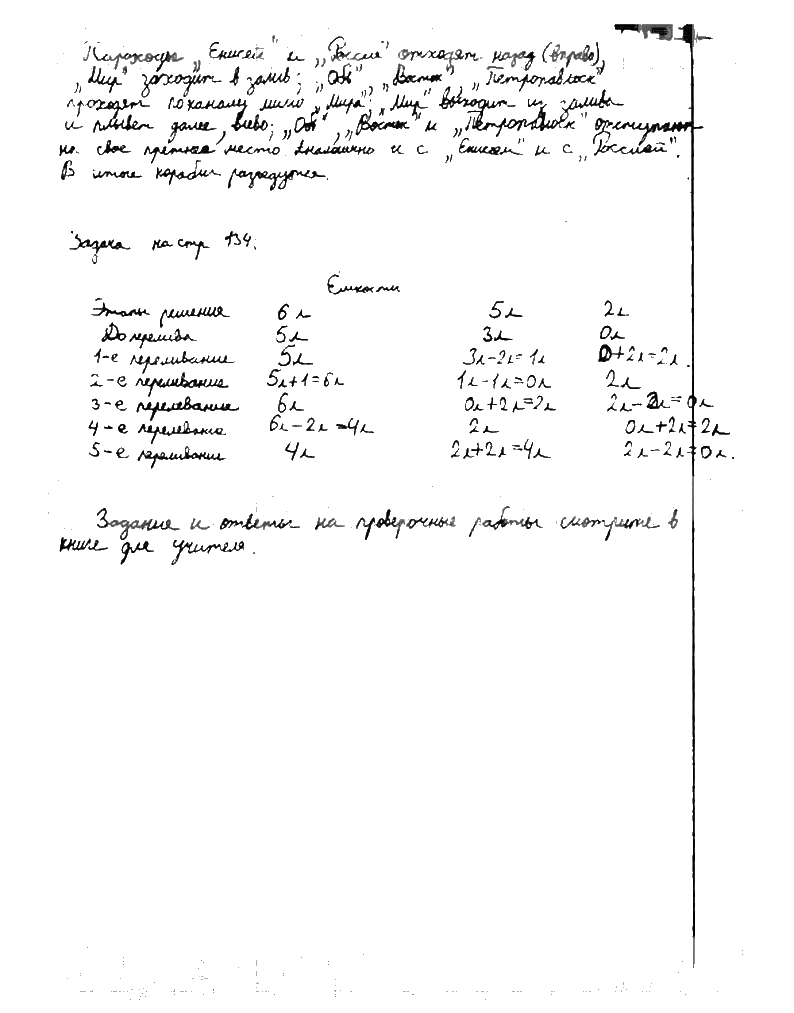 Пароходы „Енисей" и „Россия" отходят назад (вправо),
„Мир" заходит в залив; „Обь", „Восток", „Петропавловск"
проходят по каналу мимо „Мира"; „Мир" выходит из залива
и плывет далее, влево; „Обь", „Восток" и „Петропавловск" отступают
на свое прежнее место. Аналогично и с „Енисеем" и с „Россией".
В итоге корабли разойдутся.
Задача на стр 134.
Емкости
Этапы решения 6л 5л 2л
До перелива 5л 3л 0л
1-е переливание 5л 3л-2л=1л 0+2л=2л.
2-е переливание 5л+1=6л 1л-1л=0л 2л
3-е переливание 6л 0л+2л=2л 2л-2л=0л
4-е переливание 6л-2л=4л 2л 0л+2л=2л
5-е переливание 4л 2л+2л=4л 2л-2л=0л.
Задание и ответы на проверочные работы смотрите в
книге для учителя.